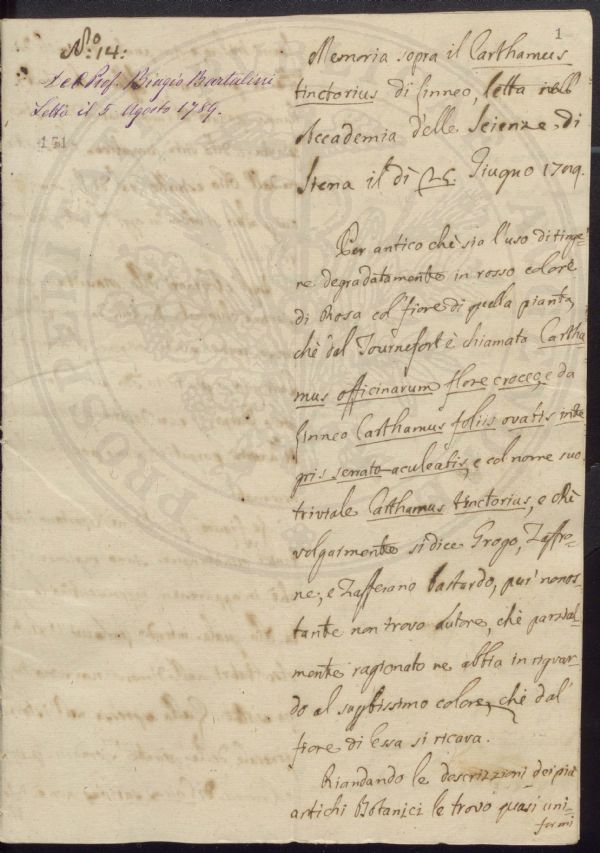 N.o 14:
Del Prof. Biagio Bartalini
Letta il 5. Agosto 1789.
151
1
Memoria sopra il Carthamus
tinctorius di Linneo, letta nell'
Accademia delle Scienze di
Siena il dì 25. Giugno 1789.
Per antico chè sia l'uso di tinge=
re degradatamente in rosso colore
di Rosa col fiore di quella pianta,
chè dal Tournefort è chiamata Cartha
mus officinarum flore croceo, e da
Linneo Carthamus foliis ovatis inte
gris serrato-aculeatis, e col nome suo
triviale Carthamus tinctorius, e chè
volgarmente si dice Grogo, Zaffro-
ne, e Zafferano bastardo, pur' nonos-
tante non trovo Autore, chè parzial-
mente ragionato ne abbia in riguar-
do al suo bissimo colore, chè dal'
fiore di Essa si ricava.
Riandando le descrizzioni dei più
antichi Botanici le trovo quasi uni-
formi